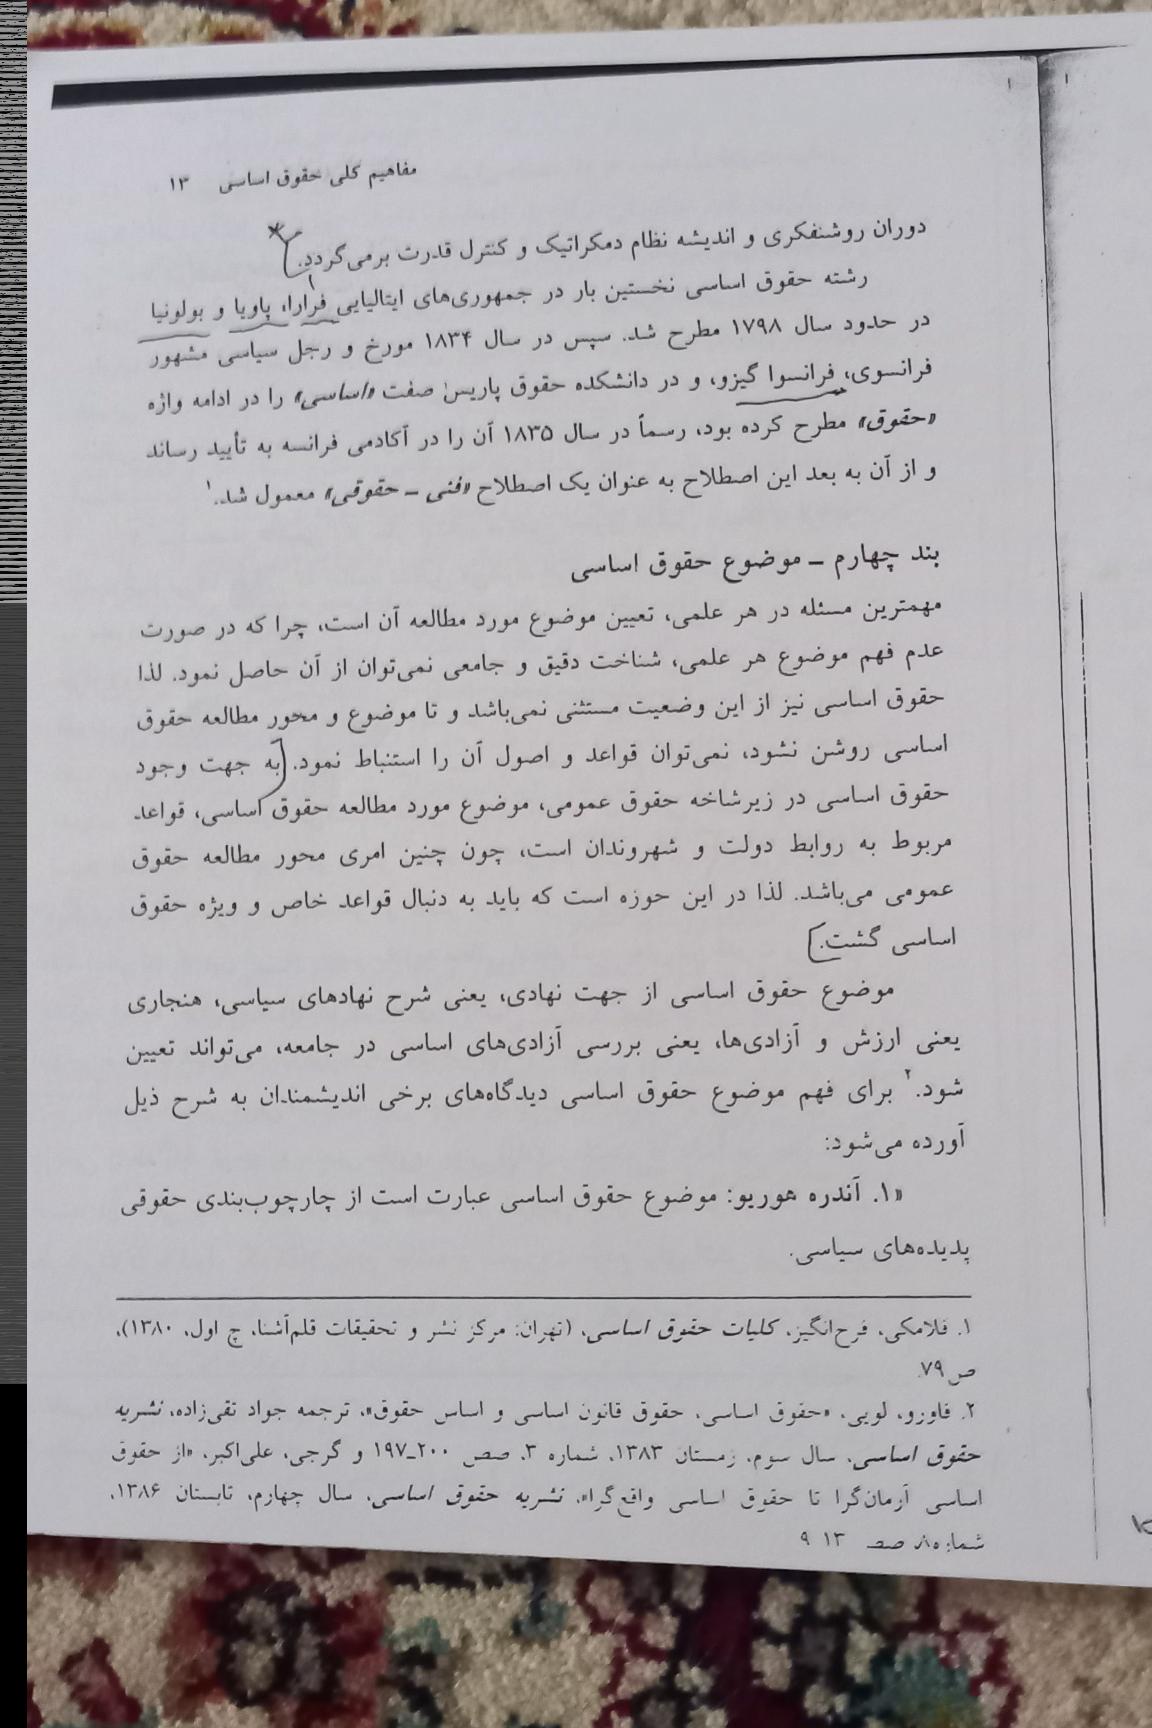 مفاهیم کلی حقوق اساسی ۱۳
دوران روشنفکری و اندیشه نظام دمکراتیک و کنترل قدرت برمی‌گردد.
رشته حقوق اساسی نخستین بار در جمهوری‌های ایتالیایی فرارا، پاویا و بولونیا
در حدود سال ۱۷۹۸ مطرح شد. سپس در سال ۱۸۳۴ مورخ و رجل سیاسی مشهور
فرانسوی، فرانسوا گیزو، و در دانشکده حقوق پاریس صفت «اساسی» را در ادامه واژه
«حقوق» مطرح کرده بود، رسماً در سال ۱۸۳۵ آن را در آکادمی فرانسه به تأیید رساند
و از آن به بعد این اصطلاح به عنوان یک اصطلاح «فنی ـ حقوقی» معمول شد.۱
بند چهارم ـ موضوع حقوق اساسی
مهمترین مسئله در هر علمی، تعیین موضوع مورد مطالعه آن است، چرا که در صورت
عدم فهم موضوع هر علمی، شناخت دقیق و جامعی نمی‌توان از آن حاصل نمود. لذا
حقوق اساسی نیز از این وضعیت مستثنی نمی‌باشد و تا موضوع و محور مطالعه حقوق
اساسی روشن نشود، نمی‌توان قواعد و اصول آن را استنباط نمود. به جهت وجود
حقوق اساسی در زیرشاخه حقوق عمومی، موضوع مورد مطالعه حقوق اساسی، قواعد
مربوط به روابط دولت و شهروندان است، چون چنین امری محور مطالعه حقوق
عمومی می‌باشد. لذا در این حوزه است که باید به دنبال قواعد خاص و ویژه حقوق
اساسی گشت.
موضوع حقوق اساسی از جهت نهادی، یعنی شرح نهادهای سیاسی، هنجاری
یعنی ارزش و آزادی‌ها، یعنی بررسی آزادی‌های اساسی در جامعه، می‌تواند تعیین
شود.۲ برای فهم موضوع حقوق اساسی دیدگاه‌های برخی اندیشمندان به شرح ذیل
آورده می‌شود:
«۱. آندره هوریو: موضوع حقوق اساسی عبارت است از چارچوب‌بندی حقوقی
پدیده‌های سیاسی.
۱. فلامکی، فرح‌انگیز، کلیات حقوق اساسی، (تهران: مرکز نشر و تحقیقات قلم‌آشنا، چ اول، ۱۳۸۰)،
ص ۷۹.
۲. فاورو، لویی، «حقوق اساسی، حقوق قانون اساسی و اساس حقوق»، ترجمه جواد تقی‌زاده، نشریه
حقوق اساسی، سال سوم، زمستان ۱۳۸۳، شماره ۳، صص ۲۰۰ـ۱۹۷ و گرجی، علی‌اکبر، «از حقوق
اساسی آرمان‌گرا تا حقوق اساسی واقع‌گرا»، نشریه حقوق اساسی، سال چهارم، تابستان ۱۳۸۶،
شماره ۸، صص ۱۳ ۹